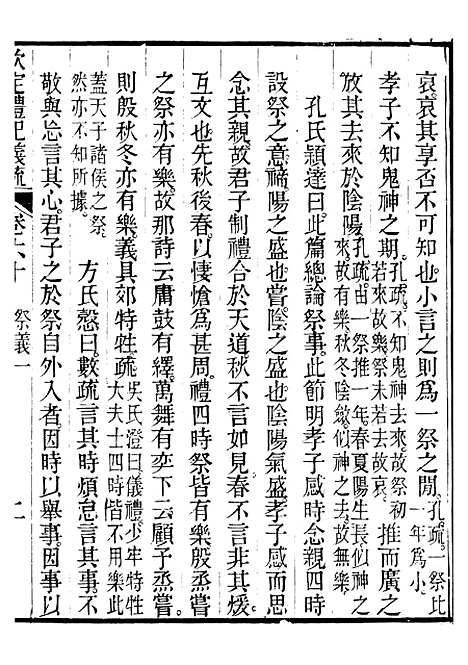 哀哀其享否不可知也小言之則爲一祭之閒孔疏一祭比一年爲小
孝子不知鬼神之期孔疏不知鬼神去來故祭初若來故樂祭末若去故哀推而廣之
放其去來於陰陽孔疏由一祭推一年春夏陽生長似神之來故有樂秋冬陰斂似神之去故無樂
孔氏穎達曰此篇總論祭事此節明孝子感時念親四時
設祭之意禘陽之盛也嘗陰之盛也陰陽氣盛孝子感而思
念其親故君子制禮合於天道秋不言如見春不言非其煖
互文也先秋後春以悽愴爲甚周禮四時祭皆有樂殷烝嘗
之祭亦有樂故那詩云庸鼓有繹萬舞有奕下云顧予烝嘗
則殷秋冬亦有樂義具郊特牲疏吳氏澄曰儀禮少牢特牲大夫士四時皆不用樂此
蓋天子諸侯之祭然亦不知所據 方氏慤曰數疏言其時煩怠言其事不
敬與忘言其心君子之於祭自外入者因時以舉事因事以
欽定禮記義疏 卷六十 祭義一 二